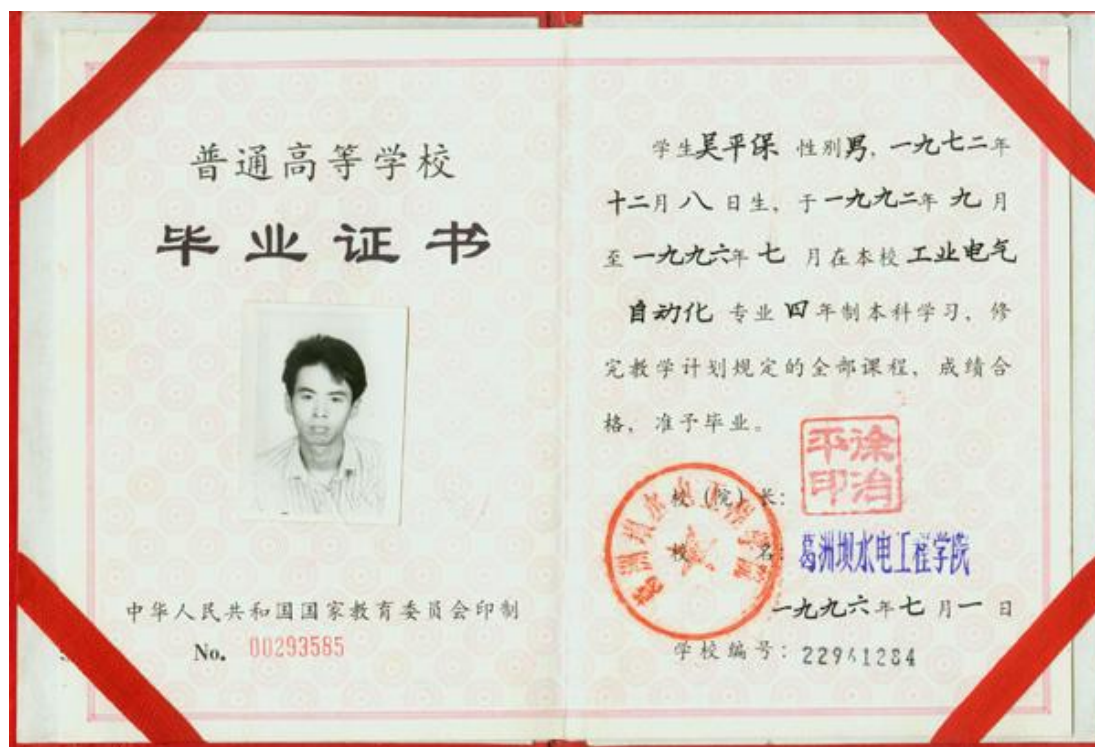 普通高等学校
毕业证书
中华人民共和国国家教育委员会印制
No. 00293585
学生吴平保 性别男，一九七二年
十二月八日生，于一九九二年九月
至一九九六年七 月在本校工业电气
自动化 专业四年制本科学习，修
完教学计划规定的全部课程，成绩合
格，准予毕业。
徐治平印
校（院）长：
校 名：葛洲坝水电工程学院
葛洲坝水电工程学院
一九九六年七月一日
学校编号：22961284